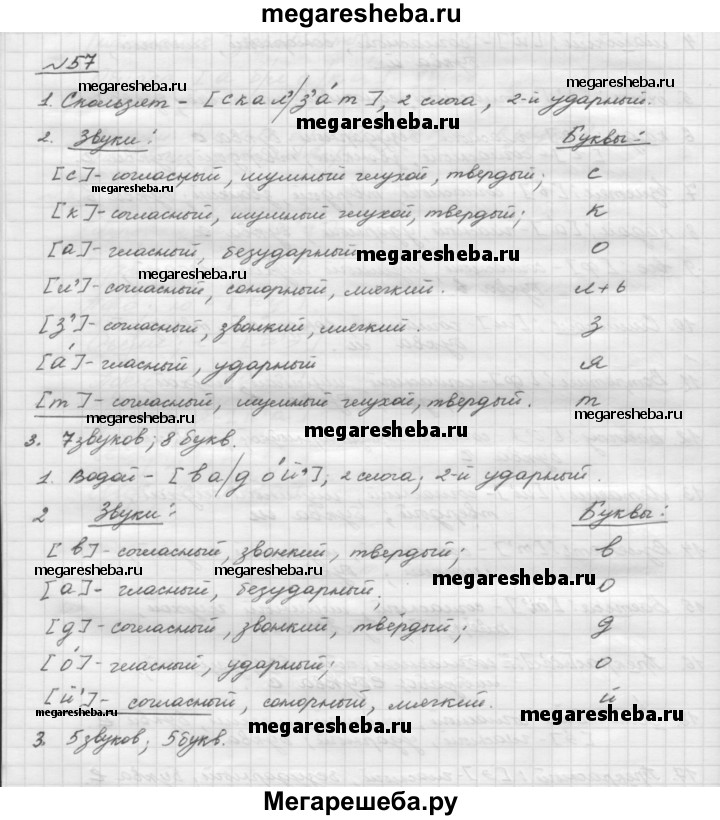 megaresheba.ru
№57
megaresheba.ru
1. Скользят - [скал'/з'áт], 2 слога, 2-й ударный.
megaresheba.ru
2. Звуки: Буквы:
[с] - согласный, шумный глухой, твердый; с
megaresheba.ru
[к] - согласный, шумный глухой, твердый; к
[а] - гласный, безударный о
megaresheba.ru
megaresheba.ru
[л'] - согласный, сонорный, мягкий. л+ь
[з'] - согласный, звонкий, мягкий. з
[á] - гласный, ударный я
[т] - согласный, шумный глухой, твердый. т
megaresheba.ru megaresheba.ru
3. 7 звуков; 8 букв.
1. Водой - [ва/дóй']; 2 слога; 2-й ударный.
2 Звуки: Буквы:
[в] - согласный, звонкий, твердый; в
megaresheba.ru megaresheba.ru megaresheba.ru
[а] - гласный, безударный; о
[д] - согласный, звонкий, твёрдый; д
[ó] - гласный, ударный; о
[й'] - согласный, сонорный, мягкий. й
megaresheba.ru megaresheba.ru
3. 5 звуков; 5 букв.
Мегарешеба.ру